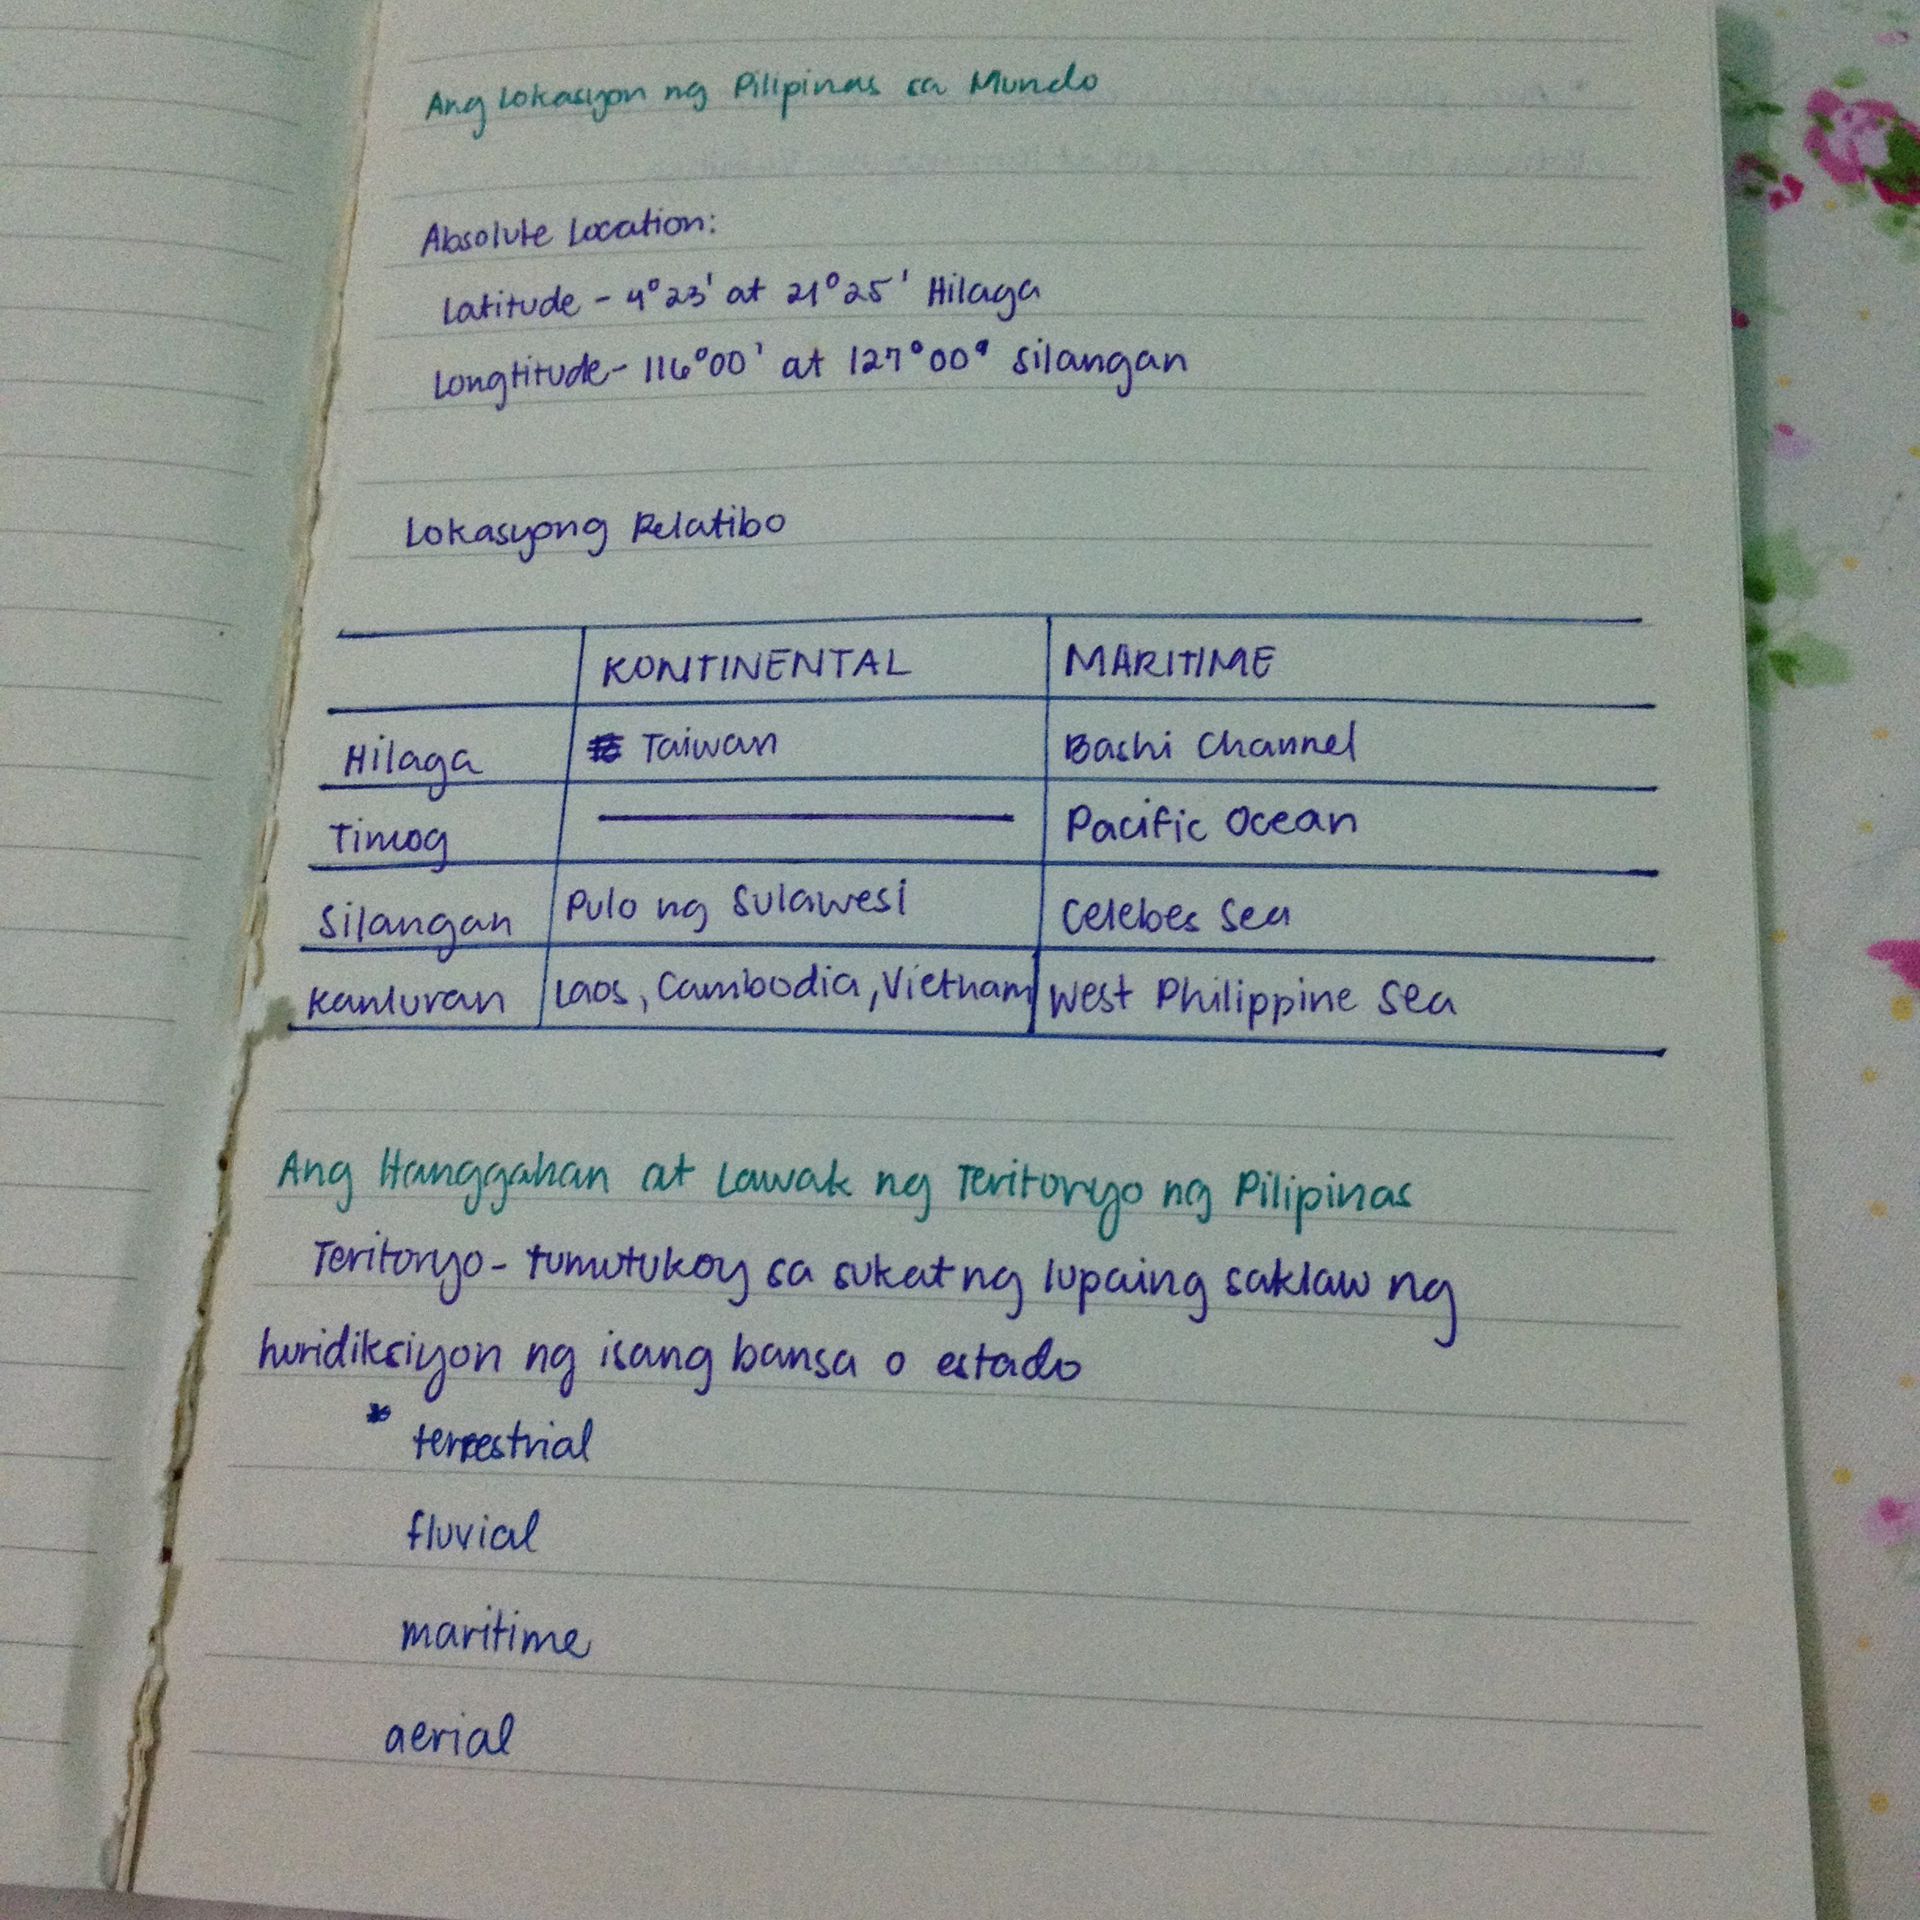 Ang Lokasyon ng Pilipinas sa Mundo
Absolute Location:
Latitude - 4°23' at 21°25' Hilaga
Longtitude - 116°00' at 127°00° Silangan
Lokasyong Relatibo
KONTINENTAL MARITIME
Hilaga Taiwan Bashi Channel
Timog Pacific Ocean
Silangan Pulo ng Sulawesi Celebes Sea
Kanluran Laos, Cambodia, Vietnam West Philippine Sea
Ang Hanggahan at Lawak ng Teritoryo ng Pilipinas
Teritoryo - tumutukoy sa sukat ng lupaing saklaw ng
huridiksiyon ng isang bansa o estado
* terrestrial
fluvial
maritime
aerial